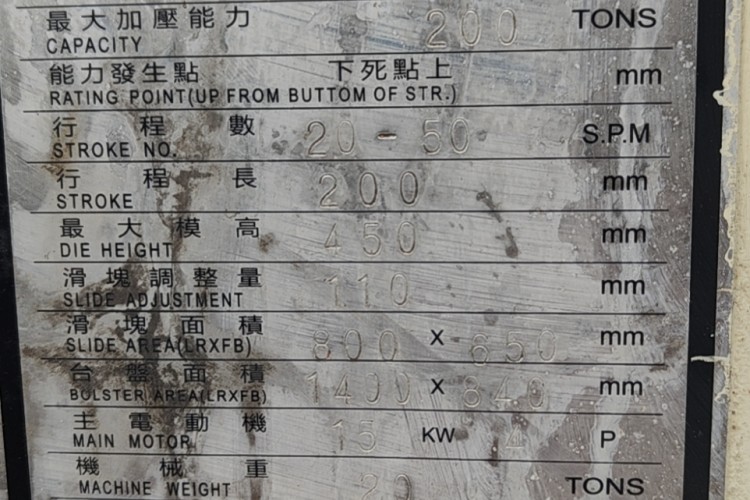 最大加壓能力 200 TONS
CAPACITY
能力發生點 下死點上 mm
RATING POINT(UP FROM BUTTOM OF STR.)
行程數 20-50 S.P.M
STROKE NO.
行程長 200 mm
STROKE
最大模高 450 mm
DIE HEIGHT
滑塊調整量 110 mm
SLIDE ADJUSTMENT
滑塊面積 800 x 650 mm
SLIDE AREA(LRXFB)
台盤面積 1400 x 840 mm
BOLSTER AREA(LRXFB)
主電動機 15 KW 4 P
MAIN MOTOR
機械重 20 TONS
MACHINE WEIGHT